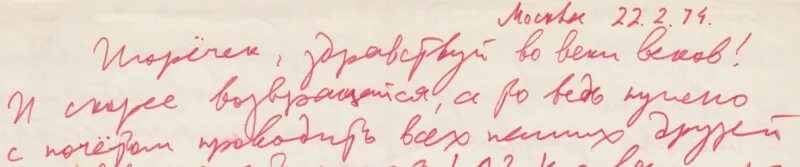 Москва 22.2.74.
Игорёчек, здравствуй во веки веков!
И скорее возвращайся, а то ведь нужно
с почётом проводить всех наших друзей